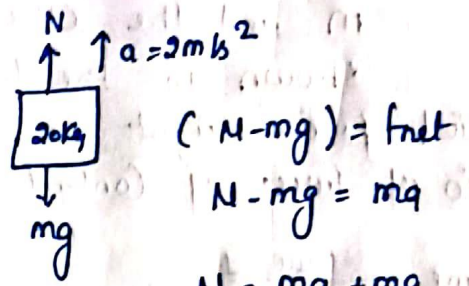 N
a = 2m/s²
20Kg
(N-mg) = fnet
N-mg = ma
mg
N = mg + ma